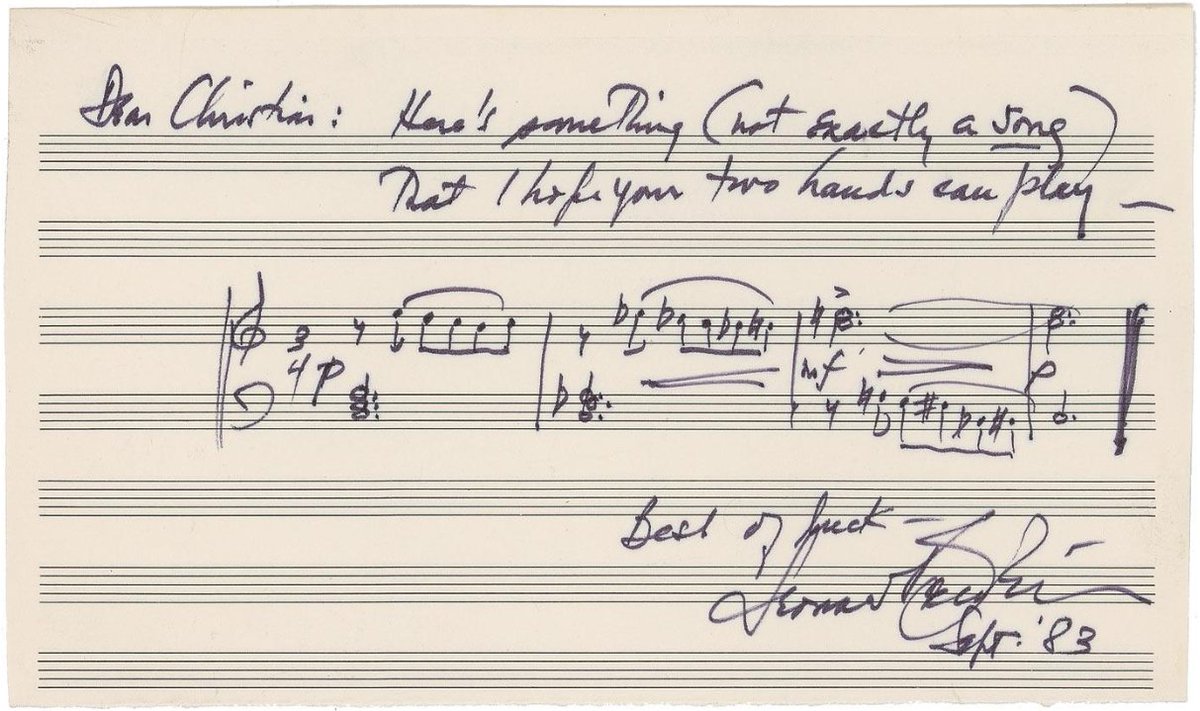 Dear Christian: Here's something (not exactly a song)
That I hope your two hands can play —
3
4 p
mf p
Best of luck —
Leonard Bernstein
Sept. '83